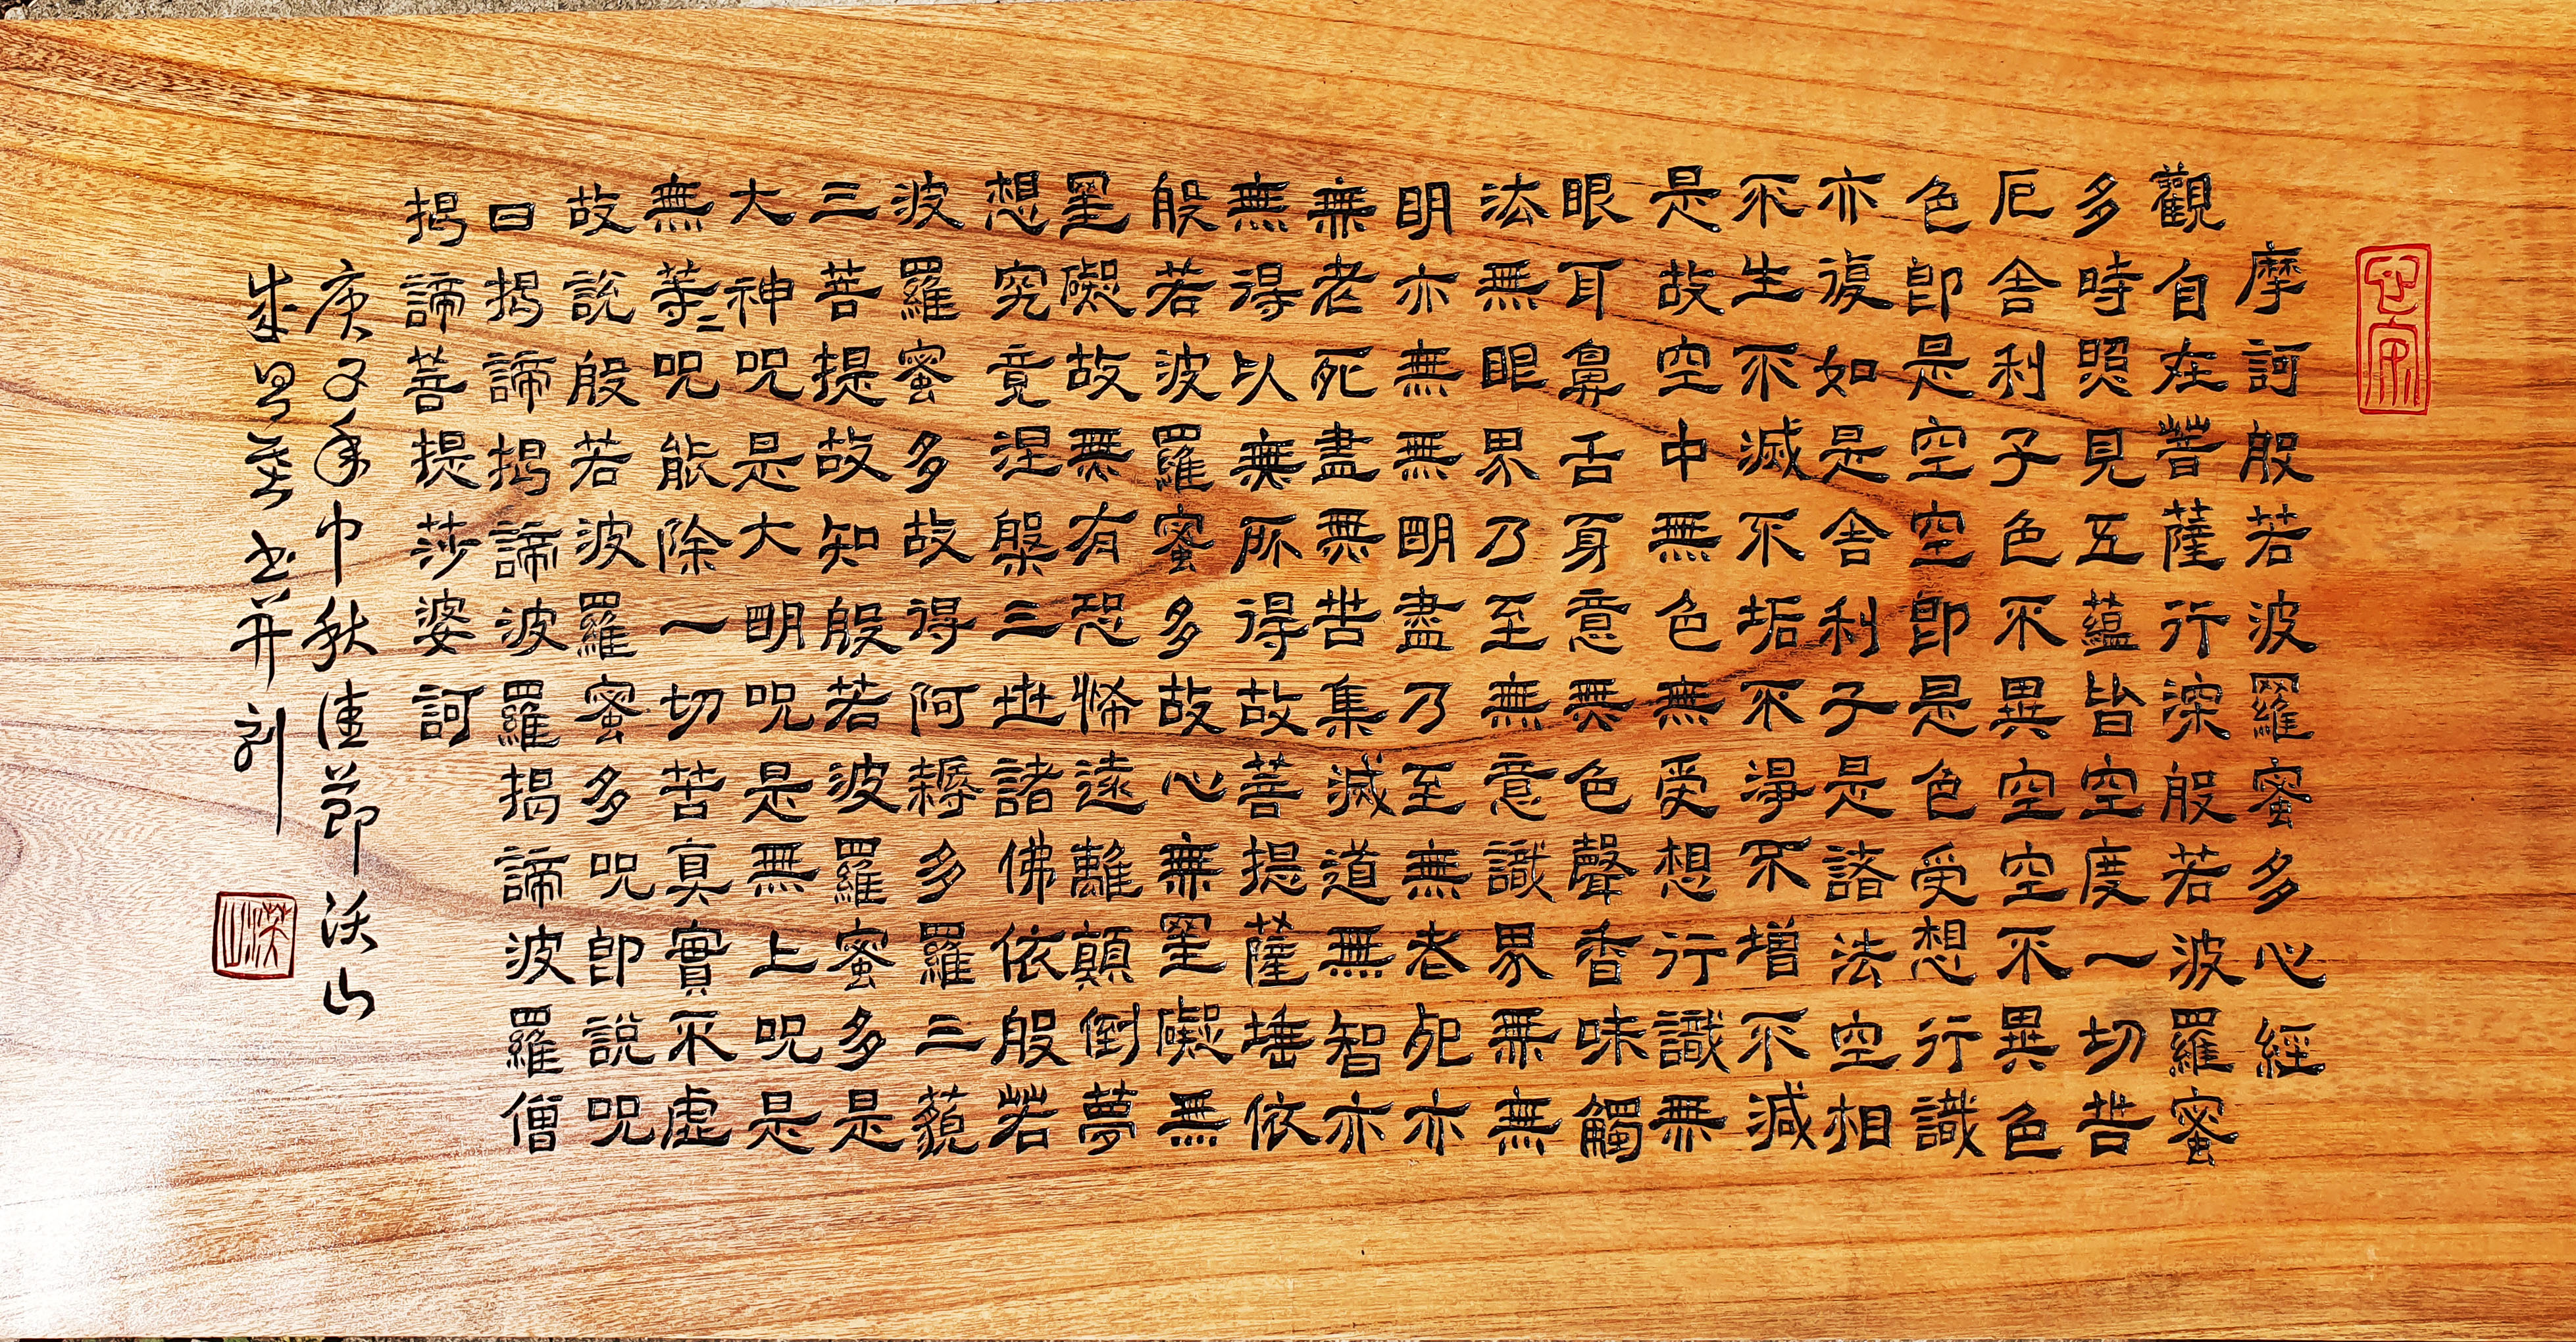 摩訶般若波羅蜜多心經
觀自在菩薩行深般若波羅蜜
多時照見五蘊皆空度一切苦
厄舍利子色不異空空不異色
色即是空空即是色受想行識
亦復如是舍利子是諸法空相
不生不滅不垢不淨不增不減
是故空中無色無受想行識無
眼耳鼻舌身意無色聲香味觸
法無眼界乃至無意識界無無
明亦無無明盡乃至無老死亦
無老死盡無苦集滅道無智亦
無得以無所得故菩提薩埵依
般若波羅蜜多故心無罣礙無
罣礙故無有恐怖遠離顛倒夢
想究竟涅槃三世諸佛依般若
波羅蜜多故得阿耨多羅三藐
三菩提故知般若波羅蜜多是
大神呪是大明呪是無上呪是
無等〻呪能除一切苦真實不虛
故說般若波羅蜜多呪即說呪
曰揭諦揭諦波羅揭諦波羅僧
揭諦菩提莎婆訶
庚子年中秋佳節沃山
書并刻
沃山